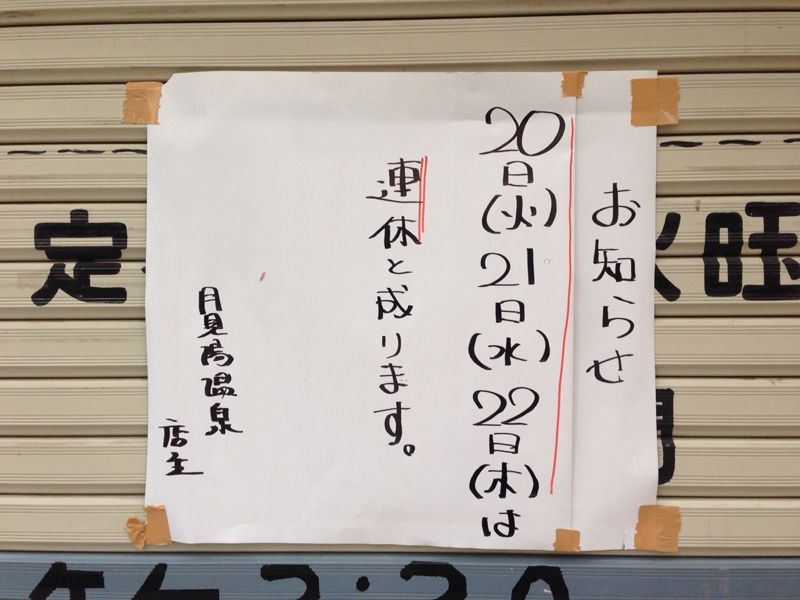 お知らせ
20日(火)21日(水)22日(木)は
連休と成ります。
月見湯温泉
店主
定
火旺